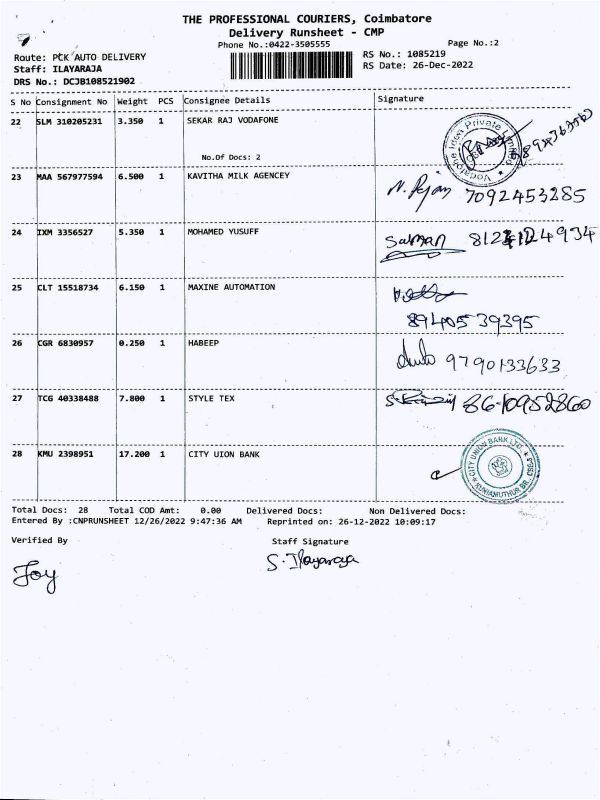 THE PROFESSIONAL COURIERS, Coimbatore
Delivery Runsheet - CMP
Phone No.:0422-3505555 Page No.:2
Route: PCK AUTO DELIVERY RS No.: 1085219
Staff: ILAYARAJA RS Date: 26-Dec-2022
DRS No.: DCJB108521902
S No Consignment No Weight PCS Consignee Details Signature
22 SLM 310205231 3.350 1 SEKAR RAJ VODAFONE
No.Of Docs: 2
23 MAA 567977594 6.500 1 KAVITHA MILK AGENCEY
N. Rjan 7092453285
24 IXM 3356527 5.350 1 MOHAMED YUSUFF
Salman
25 CLT 15518734 6.150 1 MAXINE AUTOMATION
89405 39395
26 CGR 6830957 0.250 1 HABEEP
9790133633
27 TCG 40338488 7.800 1 STYLE TEX
86-10952860
28 KMU 2398951 17.200 1 CITY UION BANK
CITY UNION BANK LTD.
KUNIAMUTHUR BR. CBE.
Total Docs: 28 Total COD Amt: 0.00 Delivered Docs: Non Delivered Docs:
Entered By :CNPRUNSHEET 12/26/2022 9:47:36 AM Reprinted on: 26-12-2022 10:09:17
Verified By Staff Signature
Joy S. Ilayaraja